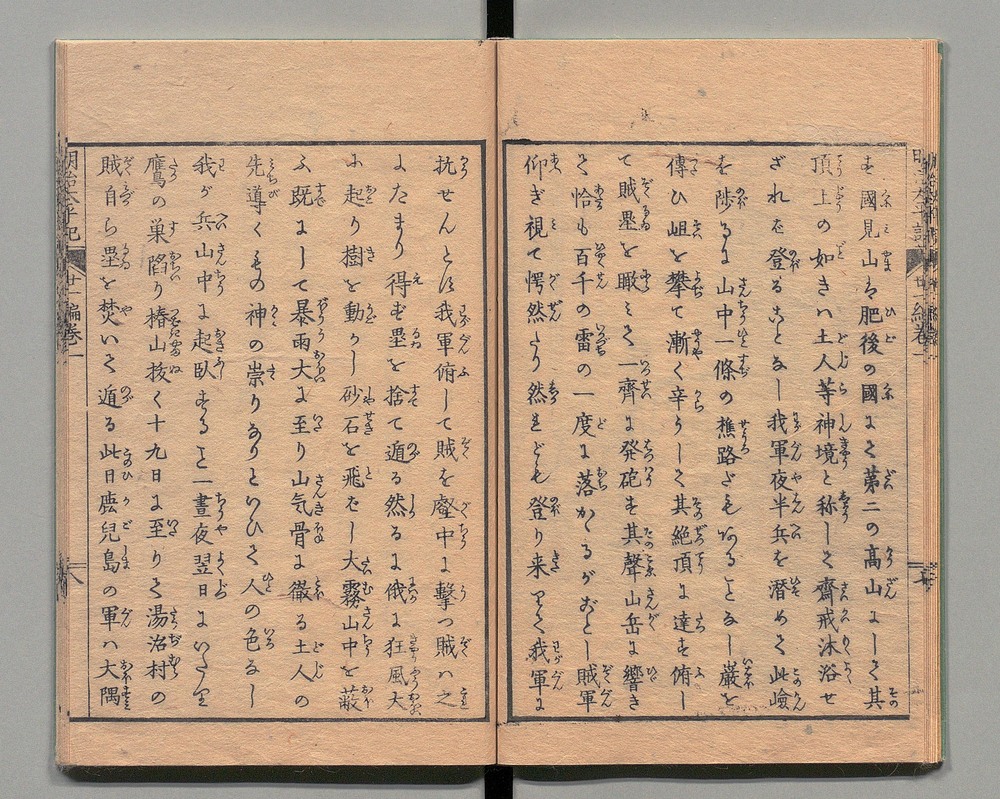 も國見山は肥後の國にて第二の高山にして其
頂上の如きハ土人等神境と称して齊戒沐浴せ
ざれバ登ることなし我軍夜半兵を潜めて此嶮
を陟るに山中一條の樵路だもあることなし巌を
傳ひ岨を攀て漸く辛うして其絶頂に達し俯し
て賊塁を瞰ミて一齊に発砲す其聲山岳に響き
て恰も百千の雷の一度に落かゝるがおとし賊軍
仰ぎ視て愕然たり然れども登り来りて我軍に
抗せんとすれバ我軍俯して賊を壑中に擊つ賊ハ之
にたまり得ず塁を捨て遁る然るに俄に狂風大
に起り樹を動かし砂石を飛ばし大霧山中を蔽
ふ既にして暴雨大に至り山気骨に徹る土人の
先導くもの神の崇りありといひて人の色なし
我が兵山中に起臥すること一晝夜翌日にいたり
鷹の巣陷り椿山抜く十九日に至りて湯治村の
賊自ら塁を焚いて遁る此日鹿兒島の軍ハ大隅
明治太平記
廿一編巻一
八